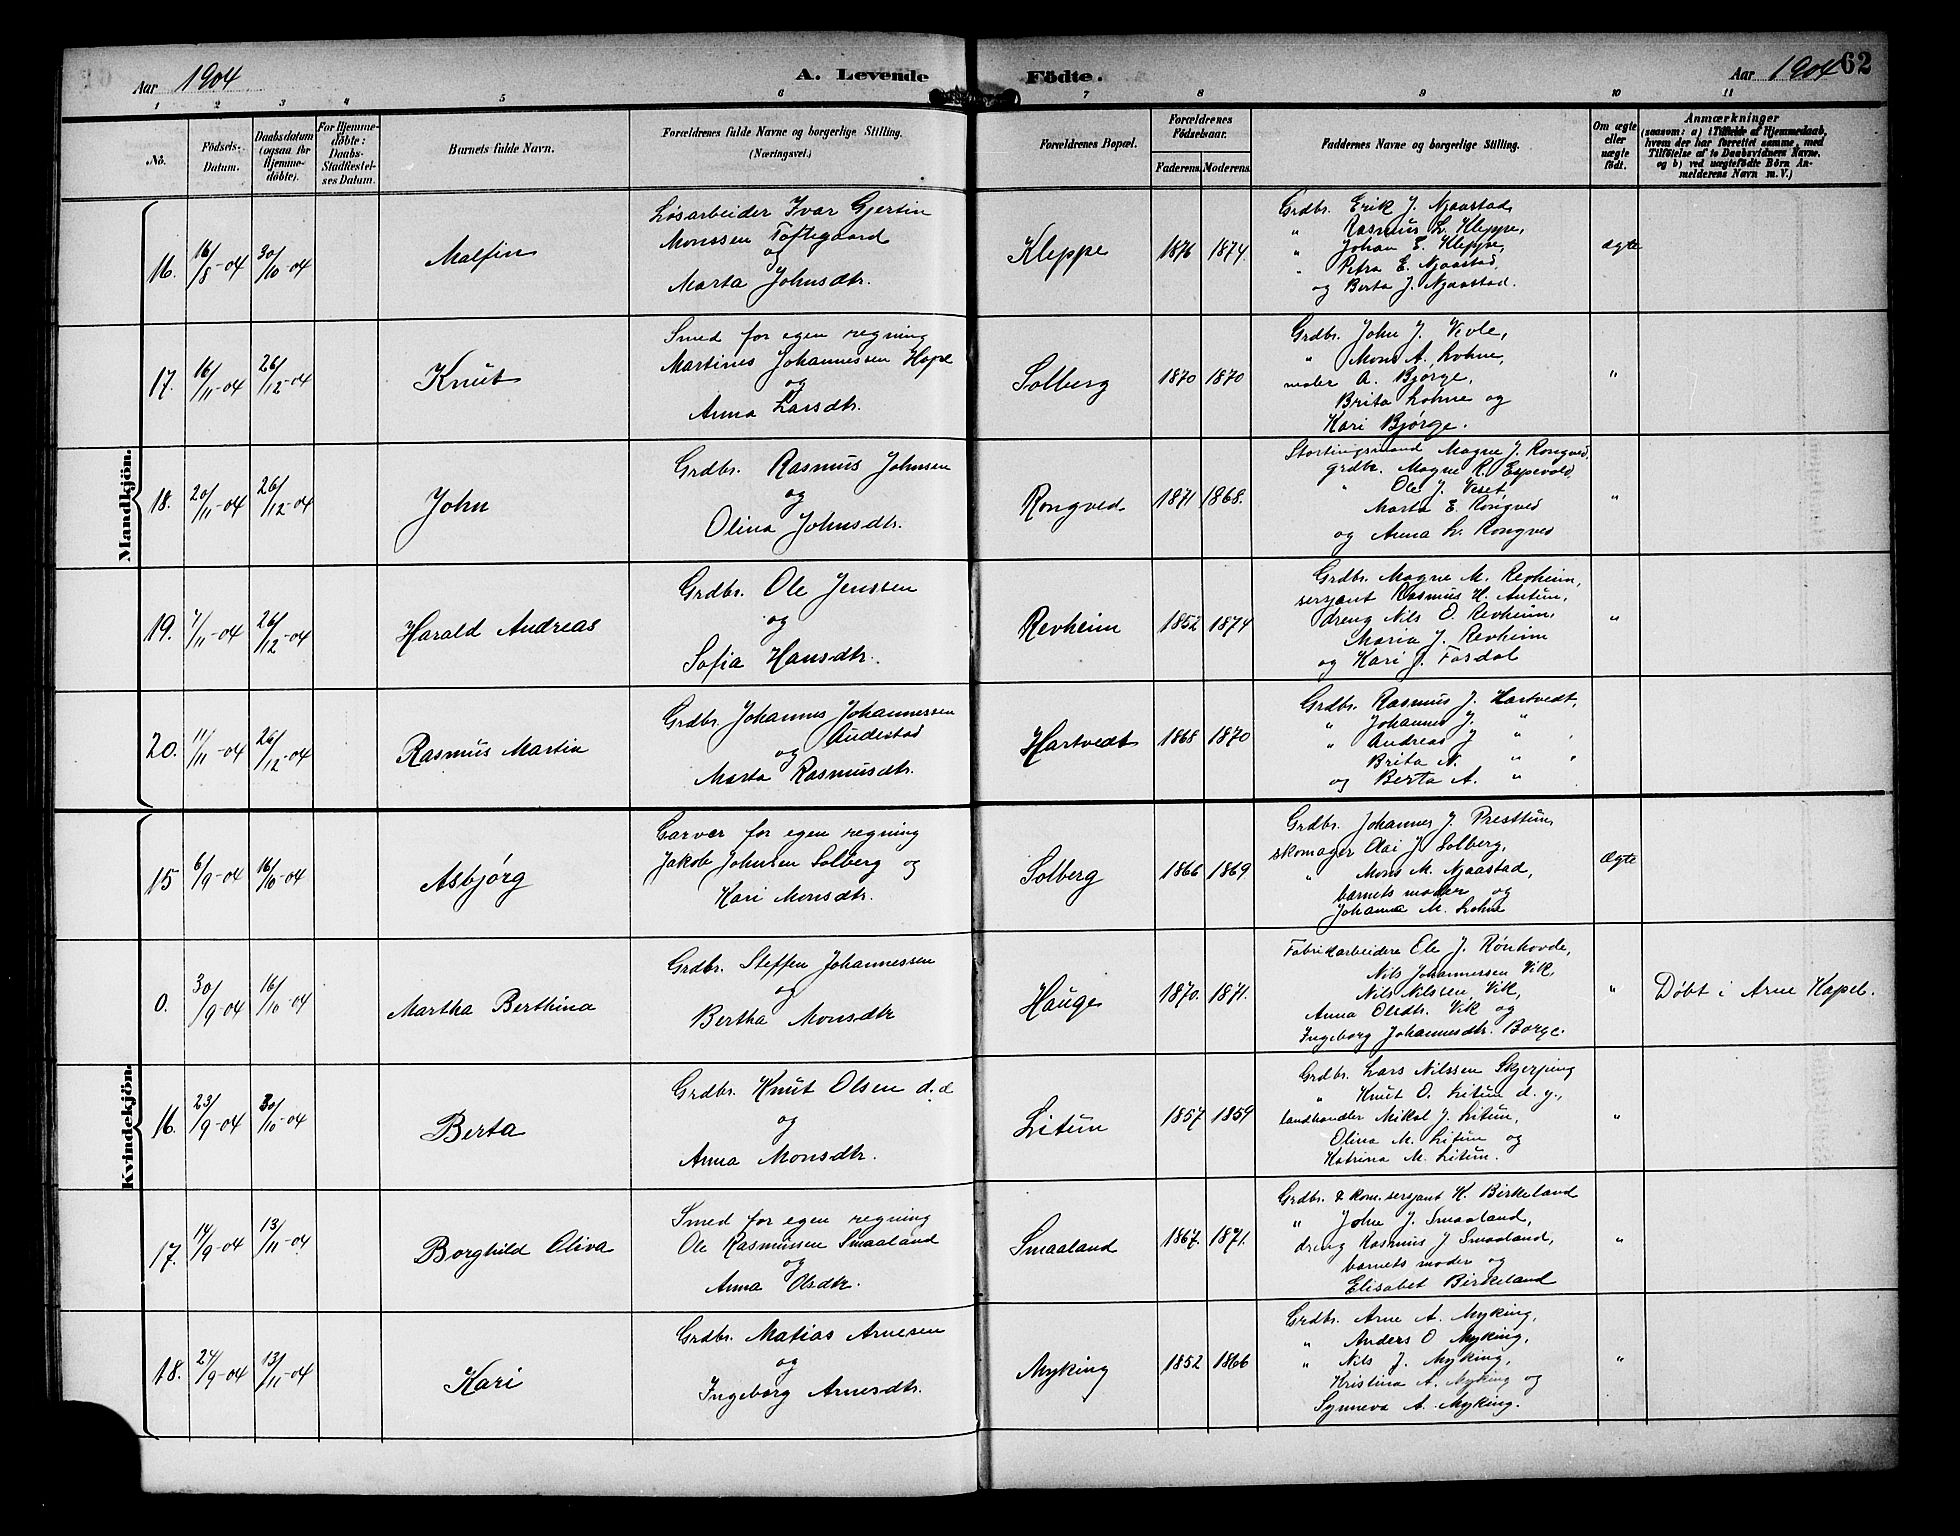 Aar 1904
A. Levende Födte.
Aar 1904 62
1 2 3 4 5 6 7 8 9 10 11
No.
Födsels-
Datum.
Daabsdatum
(ogsaa for
Hjemme-
döbte).
For Hjemme-
döbte:
Daabs-
Stadfæstel-
ses Datum.
Barnets fulde Navn.
Forældrenes fulde Navne og borgerlige Stilling.
(Næringsvei.)
Forældrenes Bopæl.
Forældrenes
Födselsaar.
Faderens. Moderens.
Faddernes Navne og borgerlige Stilling.
Om ægte
eller
uægte
födt.
Anmærkninger
(saasom: a) i Tilfælde af Hjemmedaab,
hvem der har forrettet samme, med
Tilföielse af to Daabsvidners Navne,
og b) ved uægtefödte Börn An-
melderens Navn m. V.)
Mandkjön.
16. 16/8-04 30/10-04 Malfin
Løsarbeider Ivar Gjertin
Monssen Toftegaard
og
Marta Johnsdtr.
Kleppe 1876 1874.
Grdbr. Erik J. Njaastad,
" Rasmus L. Kleppe,
" Johan E. Kleppe,
" Petra E. Njaastad,
og Berta J. Njaastad.
ægte
17. 16/11-04 26/12-04 Knut
Smed for egen regning
Martines Johannessen Hope
og
Anna Larsdtr.
Solberg 1870 1870
Grdbr. John J. Vevle,
" Mons A. Lohne,
maler A. Bjørge,
Brita Lohne og
Kari Bjørge.
"
18. 20/11-04 26/12-04 John
Grdbr. Rasmus Johnsen
og
Olina Johnsdtr.
Rongved 1871 1868.
Stortingsmand Magne J. Rongved,
grdbr. Magne R. Espevold,
" Ole J. Veset,
Marta E. Rongved
og Anna L. Rongved
"
19. 7/11-04 26/12-04 Harald Andreas
Grdbr. Ole Jenssen
og
Sofia Hansdtr.
Revheim 1852 1874
Grdbr. Magne M. Revheim,
sersjant Rasmus H. Antun,
dreng Nils O. Revheim,
Maria J. Revheim
og Kari J. Fosdal
"
20. 11/11-04 26/12-04 Rasmus Martin
Grdbr. Johannes Johannessen
og Audestad
Marta Rasmusdtr.
Hartvedt 1868 1870
Grdbr. Rasmus J. Hartvedt,
" Johannes J. "
" Andreas J "
Brita N. "
og Berta A. "
Kvindekjön.
15 6/9-04 16/10-04 Asbjørg
Garver for egen regning
Jakob Johnsen Solberg og
Kari Monsdtr.
Solberg 1866 1869
Grdbr. Johannes J. Presttun,
skomager Olai J. Solberg,
" Mons M. Njaastad,
barnets moder og
Johanna M. Lohne
Ægte
0. 30/9-04 16/10-04 Martha Berthina
Grdbr. Steffen Johannessen
og
Bertha Monsdtr
Hauge 1870. 1871.
Fabrikarbeidere Ole J. Rønhovde,
Nils Johannessen Vik,
Nils Nilssen Vik,
Anna Olsdtr. Vik og
Ingeborg Johannesdtr. Borge.
" Døbt i Arne Kapel.
16. 23/9-04 30/10-04 Berta
Grdbr. Knut Olsen d. æ
og
Anna Monsdtr.
Litun 1857 1859
Grdbr. Lars Nilssen Skjerping
" Knut O. Litun d. y.,
landhandler Mikal J. Litun,
Olina M. Litun og
Katrina M. Litun.
"
17. 14/9-04 13/11-04 Borghild Oliva
Smed for egen regning
Ole Rasmussen Smaaland
og
Anna Olsdtr.
Smaaland 1867. 1871.
Grdbr. & kom. sersjant H. Birkeland
" John J. Smaaland,
dreng Rasmus J Smaaland,
barnets moder og
Elisabet Birkeland
"
18. 24/9-04 13/11-04 Kari
Grdbr. Matias Arnesen
og
Ingeborg Arnesdtr.
Myking 1852 1866
Grdbr. Arne A. Myking,
" Anders O Myking,
" Nils J. Myking,
Kristina A. Myking og
Synneva A. Myking.
"